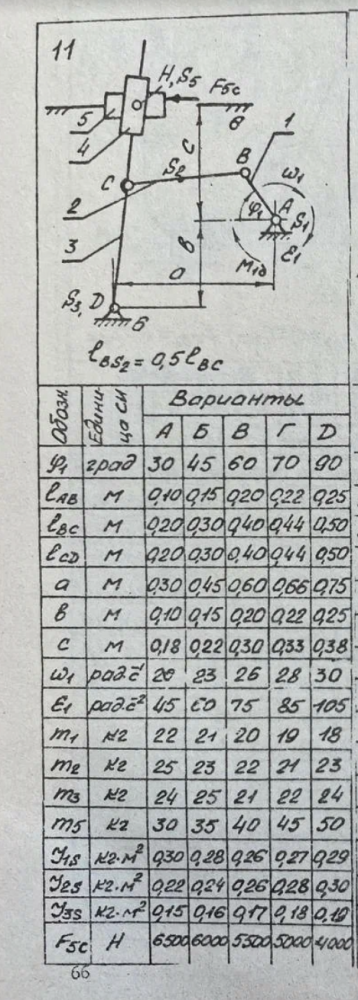 11
H,S5
F5c
5
4
6
1
c
S2
B
C
ω1
2
φ1
A
S1
3
в
ε1
M1д
a
S3,D
Б
lBS2 = 0,5 lBC
Обозн. Едини-ца СИ Варианты
А Б В Г Д
φ1 град 30 45 60 70 90
lAB м 0,10 0,15 0,20 0,22 0,25
lBC м 0,20 0,30 0,40 0,44 0,50
lCD м 0,20 0,30 0,40 0,44 0,50
a м 0,30 0,45 0,60 0,66 0,75
в м 0,10 0,15 0,20 0,22 0,25
c м 0,18 0,22 0,30 0,33 0,38
ω1 рад.c⁻¹ 20 23 26 28 30
ε1 рад.c⁻² 45 60 75 85 105
m1 кг 22 21 20 19 18
m2 кг 25 23 22 21 23
m3 кг 24 25 21 22 24
m5 кг 30 35 40 45 50
J1S кг·м² 0,30 0,28 0,26 0,27 0,29
J2S кг·м² 0,22 0,24 0,26 0,28 0,30
J3S кг·м² 0,15 0,16 0,17 0,18 0,19
F5c Н 6500 6000 5500 5000 4000
66